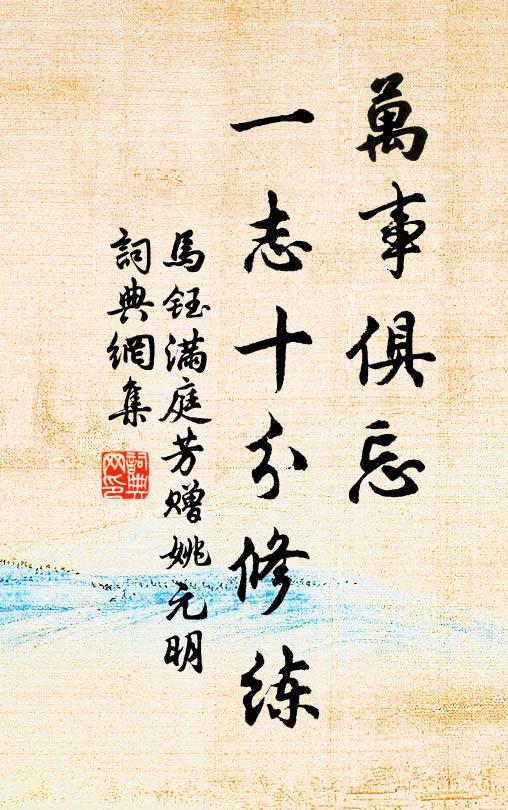 萬事俱忘
一志十分修练
馬鈺满庭芳赠姚元明
詞典網集
詞典
网印